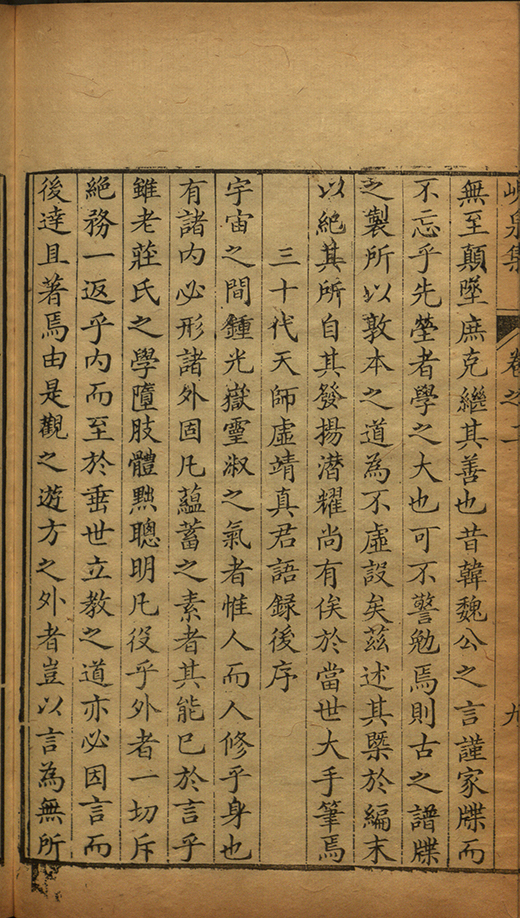 峴泉集 卷之二 九
無至顛墜庶克繼其善也昔韓魏公之言謹家牒而
不忘乎先塋者學之大也可不警勉焉則古之譜牒
之製所以敦本之道為不虛設矣茲述其槩於編末
以紀其所自其發揚潛耀尚有俟於當世大手筆焉
三十代天師虛靖真君語録後序
宇宙之間鍾光嶽靈淑之氣者惟人而人修乎身也
有諸內必形諸外固凡蘊蓄之素者其能已於言乎
雖老莊氏之學墮肢體黜聰明凡役乎外者一切斥
絶務一返乎内而至於垂世立教之道亦必因言而
後達且著焉由是觀之遊方之外者豈以言為無所